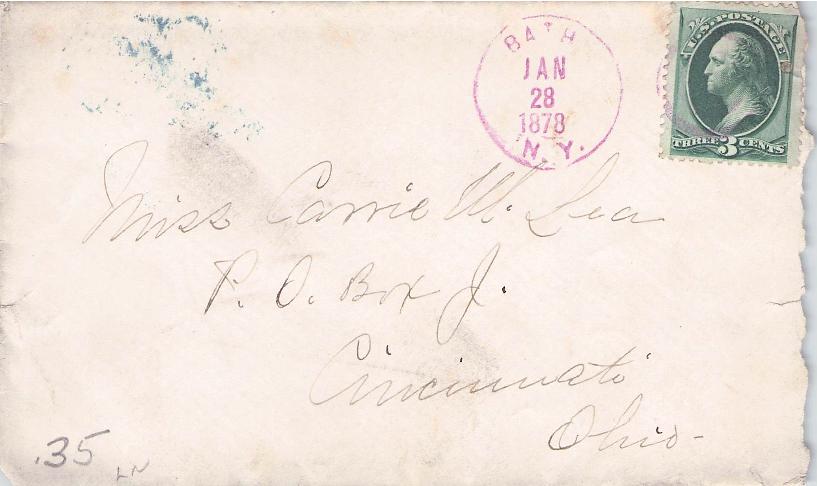 BATH
JAN
28
1878
N.Y.
U.S. POSTAGE
THREE 3 CENTS
Miss Carrie W. Lea
P. O. Box J.
Cincinnati
Ohio-
.35
LN